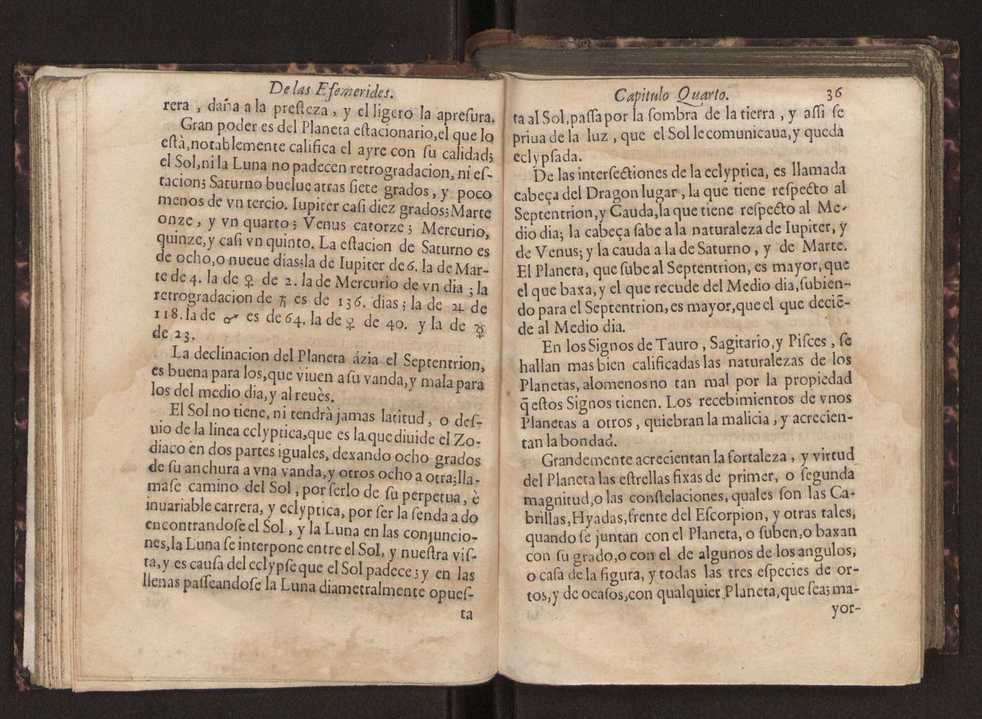 De las Efemerides.
rera , daña a la presteza , y el ligero la apresura.
Gran poder es del Planeta estacionario,el que lo
està,notablemente califica el ayre con su calidad;
el Sol,ni la Luna no padecen retrogradacion, ni es-
tacion; Saturno buelue atras siete grados , y poco
menos de vn tercio. Iupiter casi diez grados;Marte
onze , y vn quarto ; Venus catorze ; Mercurio,
quinze,y casi vn quinto. La estacion de Saturno es
de ocho,o nueue dias;la de Iupiter de 6. la de Mar-
te de 4. la de ♀ de 2. la de Mercurio de vn dia ; la
retrogradacion de ♄ es de 136. dias ; la de ♃ de
118. la de ♂ es de 64. la de ♀ de 40. y la de ☿
de 23.
La declinacion del Planeta ázia el Septentrion,
es buena para los,que viuen a su vanda,y mala para
los del medio dia,y al reuès.
El Sol no tiene, ni tendrà jamas latitud , o des-
uio de la linea eclyptica,que es la que diuide el Zo-
diaco en dos partes iguales, dexando ocho grados
de su anchura a vna vanda,y otros ocho a otra;lla-
mase camino del Sol , por serlo de su perpetua, è
inuariable carrera, y eclyptica, por ser la senda a do
encontrandose el Sol , y la Luna en las conjuncio-
nes,la Luna se interpone entre el Sol, y nuestra vis-
ta,y es causa del eclypse que el Sol padece ; y en las
llenas passeandose la Luna diametralmente opues-
ta
Capitulo Quarto. 36
ta al Sol,passa por la sombra de la tierra , y assi se
priua de la luz , que el Sol le comunicaua,y queda
eclypsada.
De las intersectiones de la eclyptica, es llamada
cabeça del Dragon lugar , la que tiene respecto al
Septentrion,y Cauda,la que tiene respecto al Me-
dio dia; la cabeça sabe a la naturaleza de Iupiter, y
de Venus; y la cauda a la de Saturno , y de Marte.
El Planeta, que sube al Septentrion, es mayor, que
el que baxa,y el que recude del Medio dia,subien-
do para el Septentrion,es mayor,que el que deciē-
de al Medio dia.
En los Signos de Tauro , Sagitario,y Pisces , se
hallan mas bien calificadas las naturalezas de los
Planetas, alomenos no tan mal por la propiedad
q̃ estos Signos tienen. Los recebimientos de vnos
Planetas a otros , quiebran la malicia , y acrecien-
tan la bondad.
Grandemente acrecientan la fortaleza , y virtud
del Planeta las estrellas fixas de primer, o segunda
magnitud,o las constelaciones, quales son las Ca-
brillas,Hyadas,frente del Escorpion, y otras tales,
quando se juntan con el Planeta, o suben,o baxan
con su grado,o con el de algunos de los angulos,
o casa de la figura, y todas las tres especies de or-
tos,y de ocasos,con qualquier Planeta,que sea; ma-
yor-